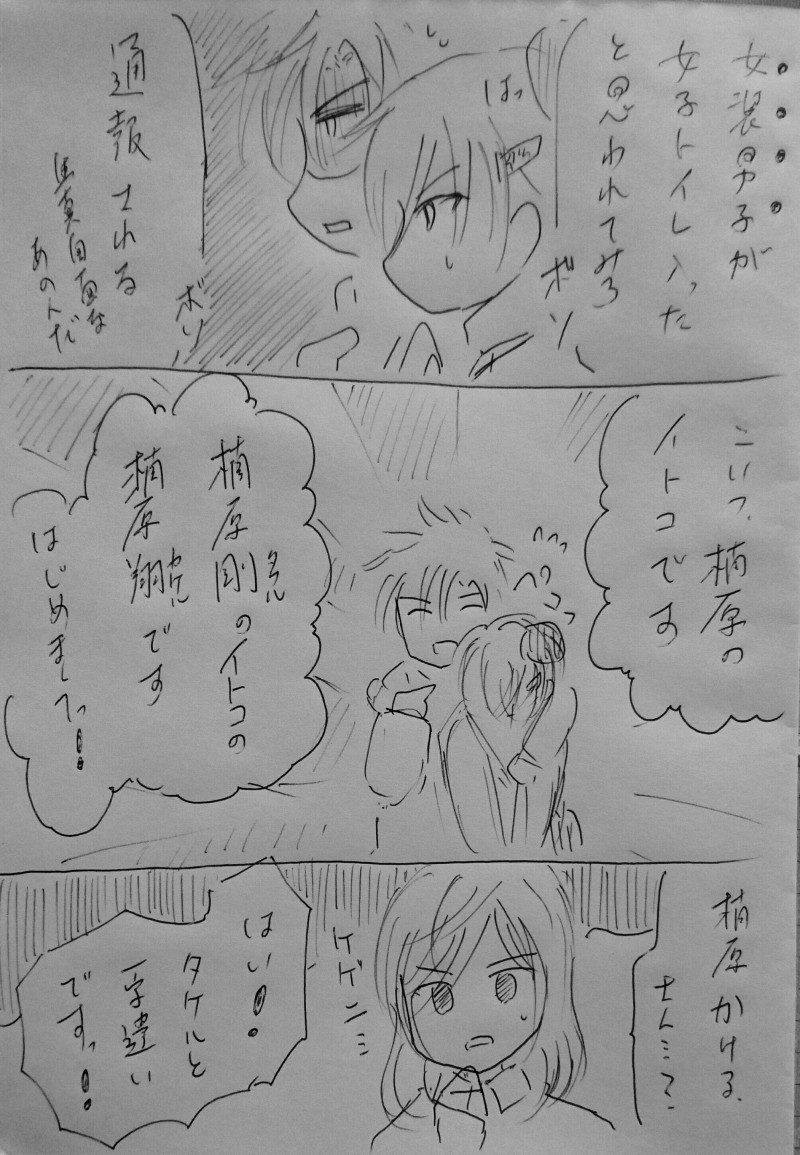 女装男子が
女子トイレ入った
と思われてみろ
ボソッ
はっ
通報される
真面目な
あの人だ
ボソッ
こいつ、楠原の
イトコです
ヘコッ
楠原剛のイトコの
タケル
楠原翔です
カケル
はじめましてっ!
楠原かける、
さん…?
ケゲン…
はい!
タケルと
一字違い
ですっ!